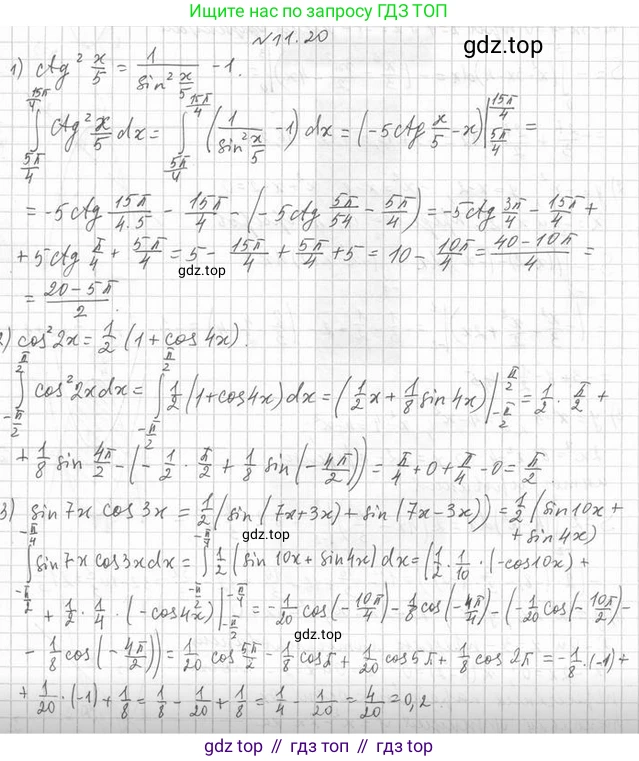 Ищите нас по запросу ГДЗ ТОП
№11.20
gdz.top
1) ctg² x/5 = 1/(sin² x/5) - 1.
∫_{5π/4}^{15π/4} ctg² x/5 dx = ∫_{5π/4}^{15π/4} (1/(sin² x/5) - 1) dx = (-5ctg x/5 - x)|_{5π/4}^{15π/4} =
= -5ctg 15π/(4·5) - 15π/4 - (-5ctg 5π/54 - 5π/4) = -5ctg 3π/4 - 15π/4 +
+ 5ctg π/4 + 5π/4 = 5 - 15π/4 + 5π/4 + 5 = 10 - 10π/4 = (40-10π)/4 =
gdz.top
= (20-5π)/2.
2) cos² 2x = 1/2 (1 + cos 4x).
∫_{-π/2}^{π/2} cos² 2x dx = ∫_{-π/2}^{π/2} 1/2 (1+cos4x) dx = (1/2 x + 1/8 sin 4x)|_{-π/2}^{π/2} = 1/2 · π/2 +
+ 1/8 sin 4π/2 - (-1/2 · π/2 + 1/8 sin (-4π/2)) = π/4 + 0 + π/4 - 0 = π/2.
3) sin 7x cos 3x = 1/2 (sin (7x+3x) + sin (7x-3x)) = 1/2 (sin 10x +
+ sin 4x)
gdz.top
∫_{-π/2}^{-π/4} sin 7x cos 3x dx = ∫_{-π/2}^{-π/4} 1/2 (sin 10x + sin 4x) dx = (1/2 · 1/10 · (-cos 10x) +
+ 1/2 · 1/4 · (-cos 4x)|_{-π/2}^{-π/4} = -1/20 cos (-10π/4) - 1/8 cos (-4π/4) - (-1/20 cos (-10π/2) -
- 1/8 cos (-4π/2)) = 1/20 cos 5π/2 - 1/8 cos π + 1/20 cos 5π + 1/8 cos 2π = -1/8 · (-1) +
+ 1/20 · (-1) + 1/8 = 1/8 - 1/20 + 1/8 = 1/4 - 1/20 = 4/20 = 0,2
gdz.top // gdz.top // gdz.top